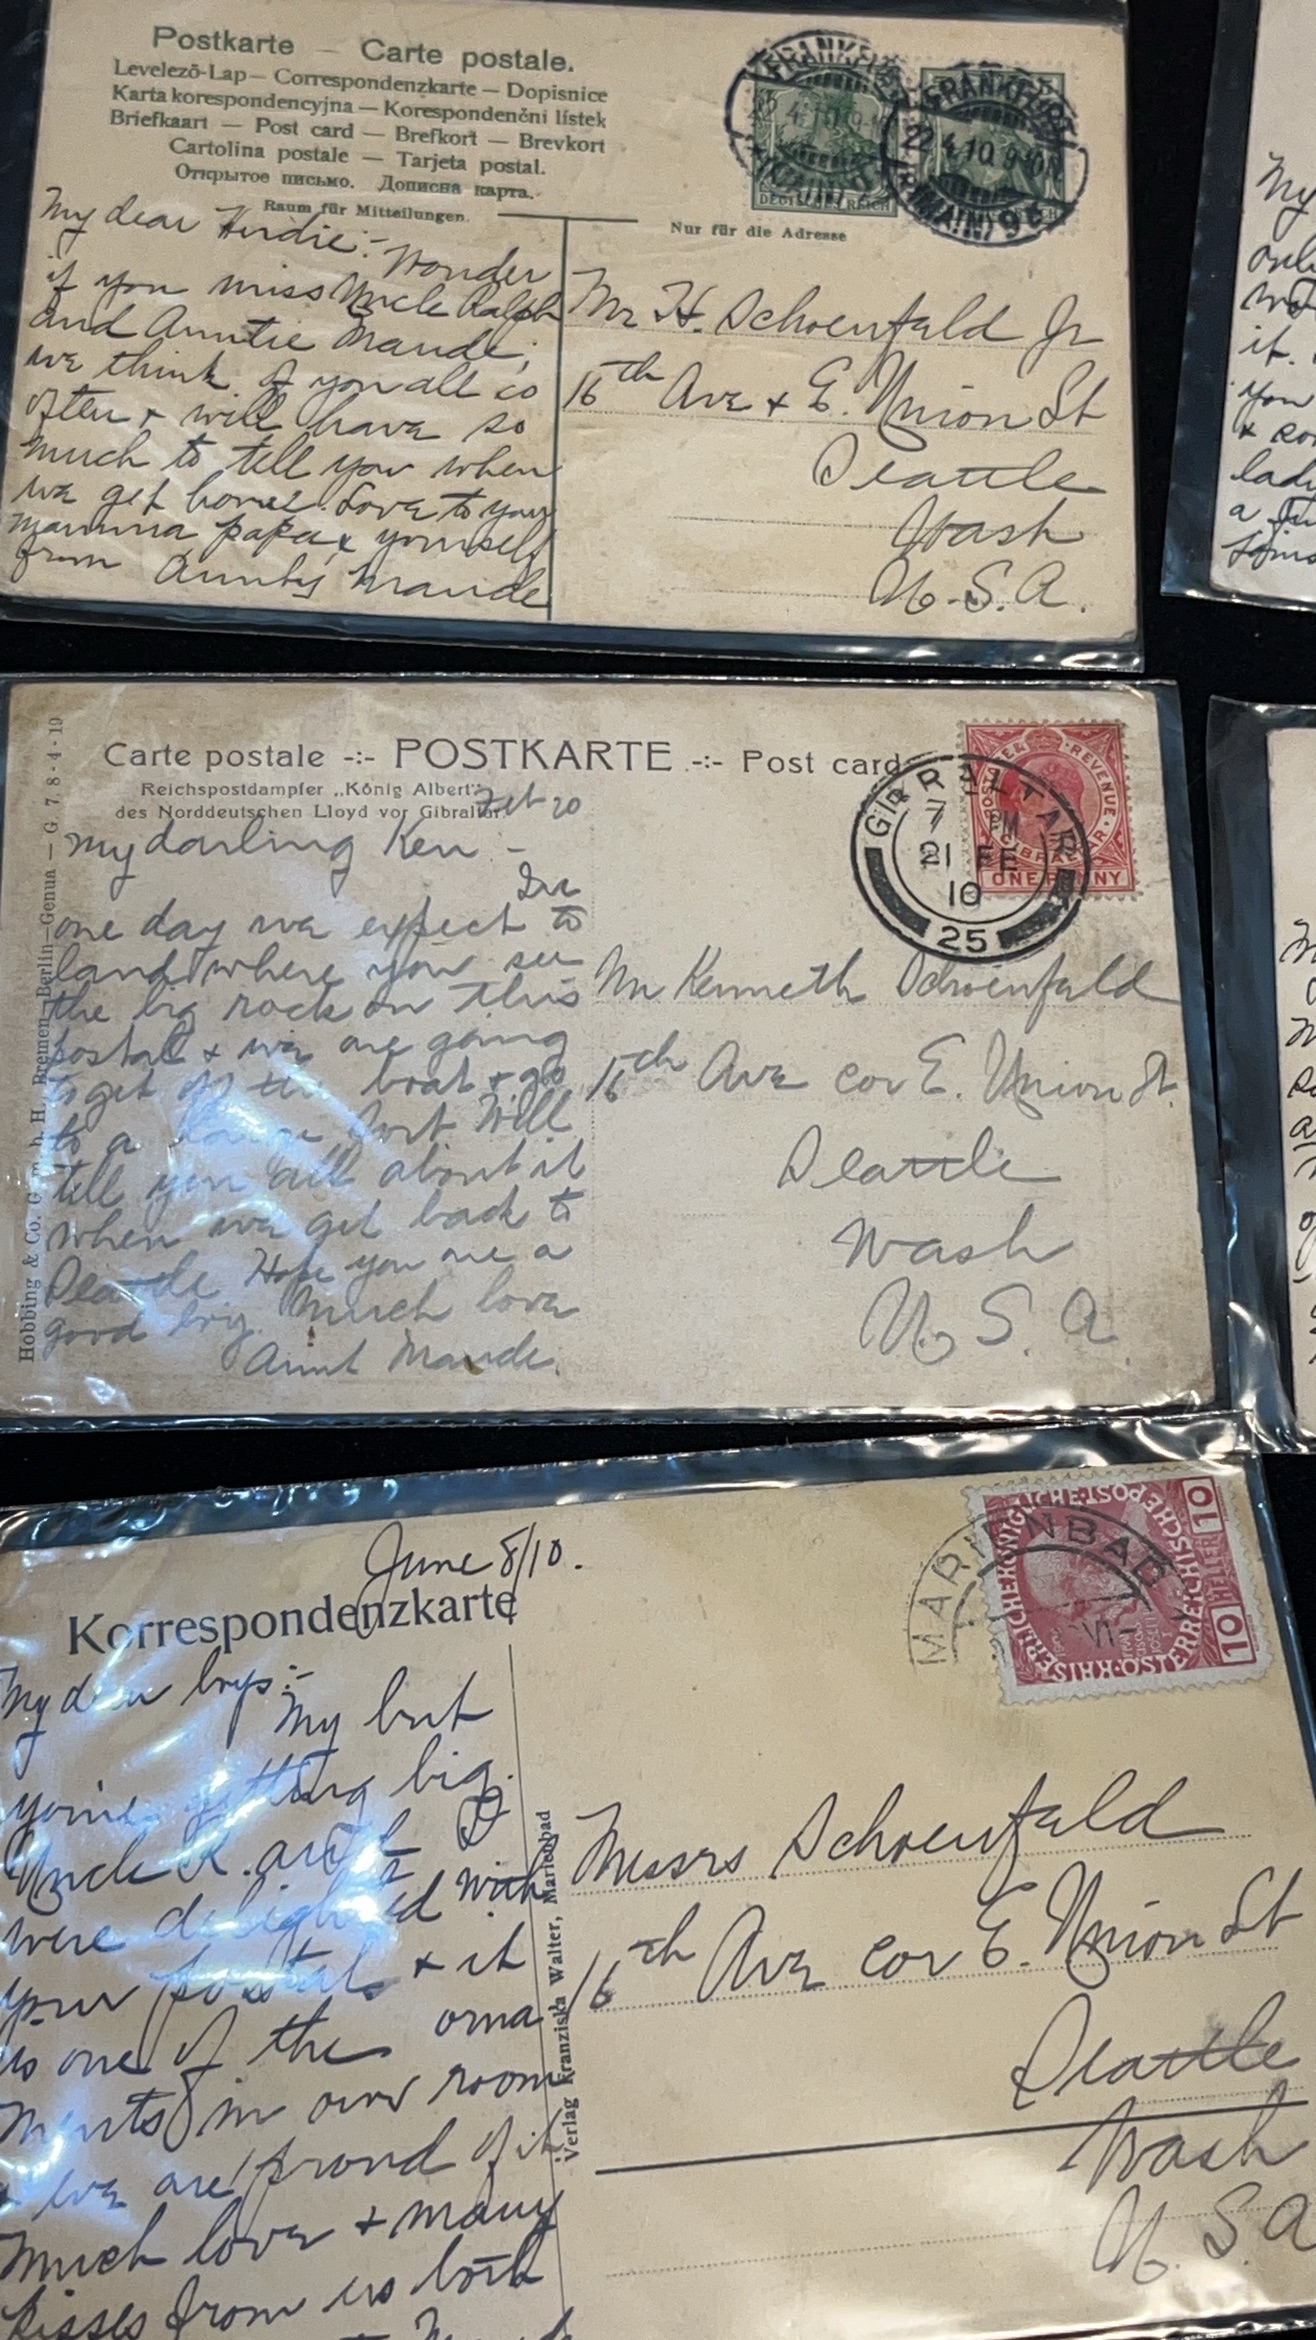 Postkarte — Carte postale.
Levelező-Lap — Correspondenzkarte — Dopisnice
Karta korespondencyjna — Korespondenční lístek
Briefkaart — Post card — Brefkort — Brevkort
Cartolina postale — Tarjeta postal.
Открытое письмо. Дописна карта.
Raum für Mitteilungen.
Nur für die Adresse
FRANKFURT
(MAIN)
DEUTSCHES REICH
FRANKFURT
22.4.10.9-10N
(MAIN) 9
My dear Herdie:- Wonder
if you miss Uncle Ralph
and Auntie Maude;
we think of you all so
often & will have so
much to tell you when
we get home. Love to your
mamma papa & yourself
from Aunty Maude
Mr H. Schoenfeld Jr
16th Ave & E. Union St
Seattle
Wash
U.S.A.
Carte postale -:- POSTKARTE -:- Post card
Reichspostdampfer „König Albert"
des Norddeutschen Lloyd vor Gibraltar.
Feb 20
Hobbing & Co. G. m. b. H. Bremen—Berlin—Genua — G. 7. 8. 4. 19
POSTAGE & REVENUE
GIBRALTAR
ONE PENNY
GIBRALTAR
7 PM
21 FE
10
25
My darling Ken -
In
one day we expect to
land where you see
the big rock on this
postal & we are going
to get off the boat & go
to a large fort. Will
tell you all about it
when we get back to
Seattle Hope you are a
good boy. Much love
Aunt Maude.
Mr Kenneth Schoenfeld
16th Ave cor E. Union St.
Seattle
Wash
U.S.A.
June 8/10.
Korrespondenzkarte
MARIENBAD
VI
10 HELLER 10
My dear boys:-
My but
you're getting big.
Uncle R. and I
were delighted with
your postal & it
is one of the orna
ments in our room
& we are proud of it
Much love & many
kisses from us both
Verlag Franziska Walter, Marienbad
Messrs Schoenfeld
16th Ave cor E. Union St
Seattle
Wash
U.S.A